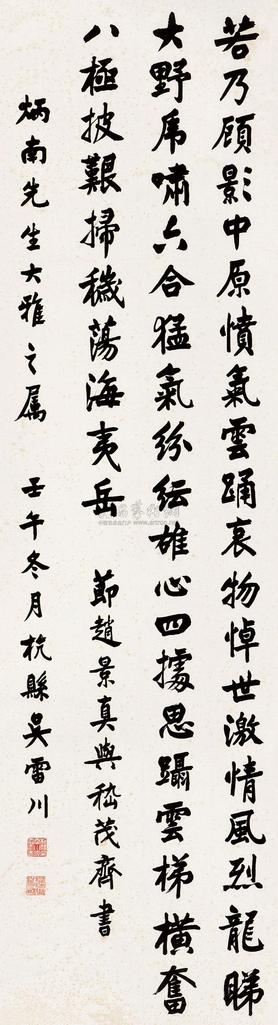 若乃顧影中原憤氣雲踊哀物悼世激情風烈龍睇
大野虎嘯六合猛氣紛紜雄心四據思躡雲梯橫奮
八極披艱掃穢蕩海夷岳 節趙景真與嵇茂齊書
炳南先生大雅之屬 壬午冬月杭縣吳雷川